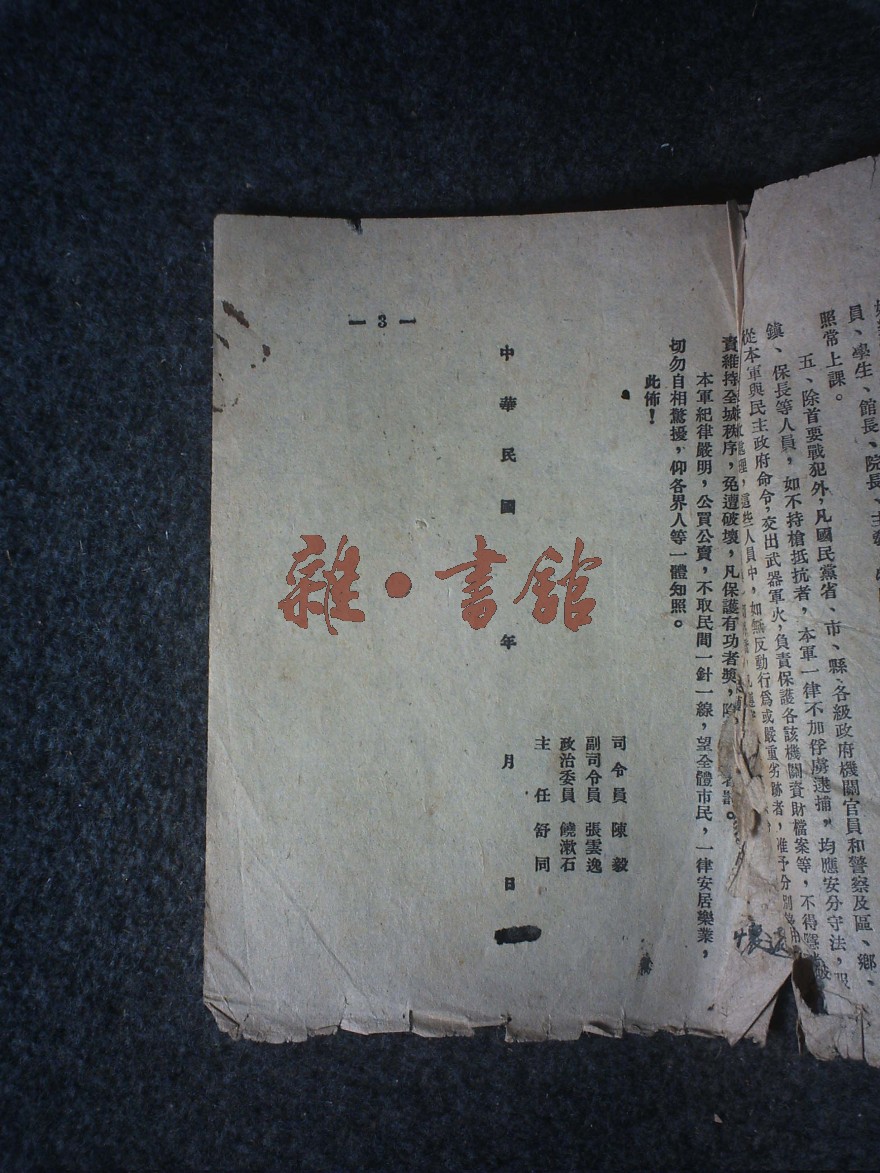 員、學生、館長、院長、
照常上課。
五、除首要戰犯外，凡國民黨省、市、縣、各級政府機關官員和警察及區、鄉、
鎮、保長等人員，如不持槍抵抗者，本軍一律不加俘虜逮捕，均應安分守法，服
從本軍與民主政府命令，交出武器軍火，負責保護各該機關資財檔案等，不得
處理，這些人員中，如無反動行爲或嚴重劣跡者，准予分別
責維持全城秩序，免遭破壞，凡保護有功者獎，
本軍紀律嚴明，公買公賣，不取民間一針一線，望全體市民，一律安居樂業，
切勿自相驚擾，仰各界人等一體知照。
此佈！
司令員 陳毅
副司令員 張雲逸
政治委員 饒漱石
主任 舒同
中華民國 年 月 日
— 3 —
雜·書館